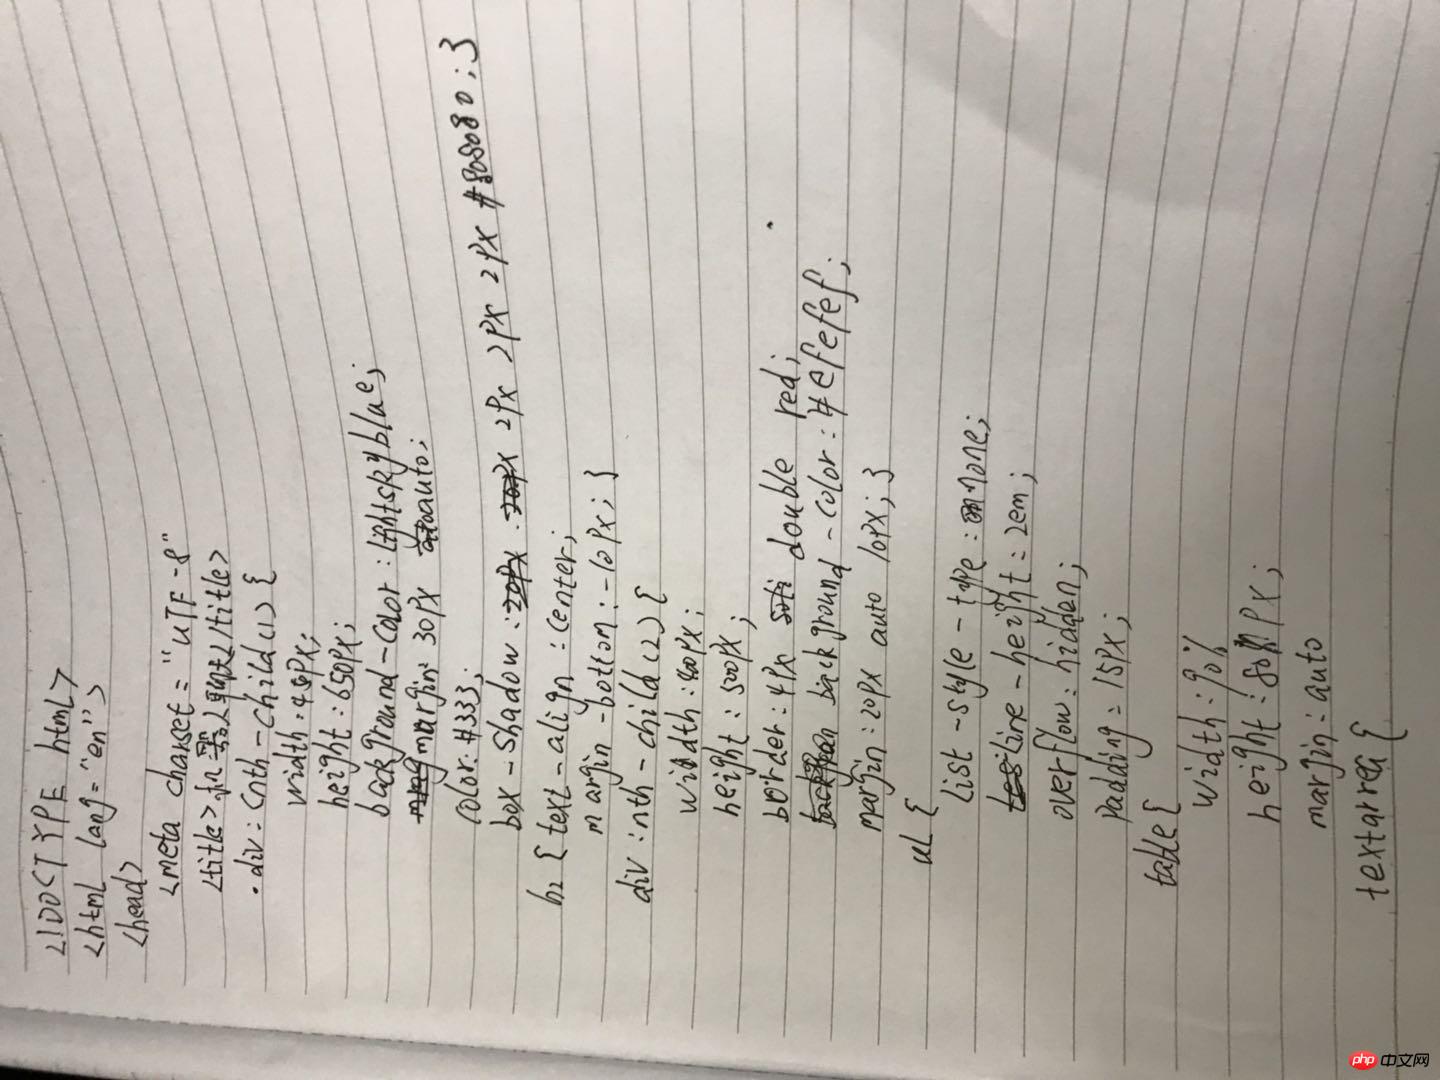 <!DOCTYPE html>
<html lang="en">
<head>
<meta charset="UTF-8"
<title> 机器人聊天</title>
.div:(nth-child(1){
width:450px;
height:650px;
background-color:lightskyblue;
margin:30px auto;
color:#333;
box-shadow: 2px 2px 2px 2px #808080;}
h2{text-align:center;
margin-bottom:-10px;}
div:nth-child(2){
width:400px;
height:500px;
border:4px double red;
background-color:#efefef;
margin:20px auto 10px;}
ul{
list-style-type:none;
line-height:2em;
overflow:hidden;
padding=15px;
table{
width:90%
height:80px;
margin:auto
textarea{
php 中文网